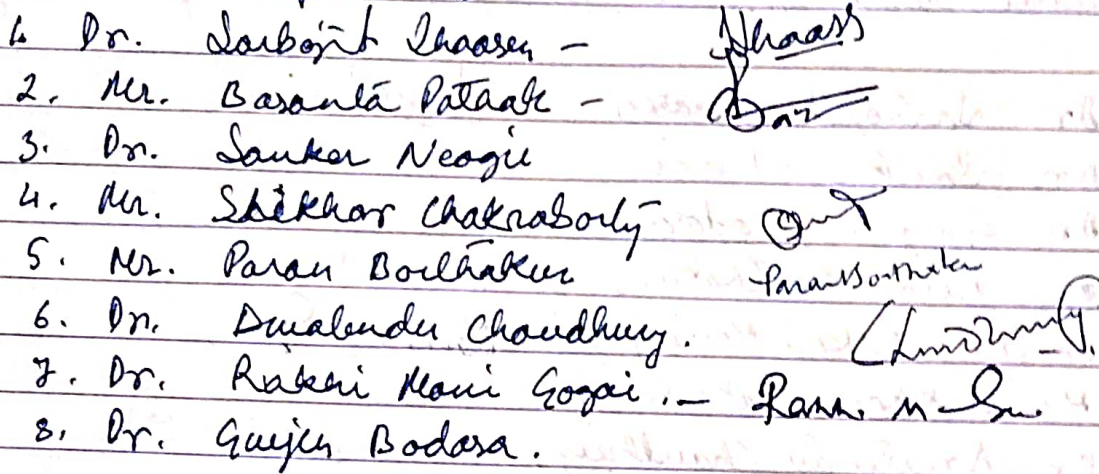 1. Dr. Sarbojit Thaosen -
2. Mr. Basanta Pataak -
3. Dr. Sanker Neogii
4. Mr. Shikhar Chakraborty
5. Mr. Paran Borthakur Paran Borthakur
6. Dr. Dwabendu Choudhury.
7. Dr. Rakhi Moni Gogoi. -
8. Dr. Bodosa.